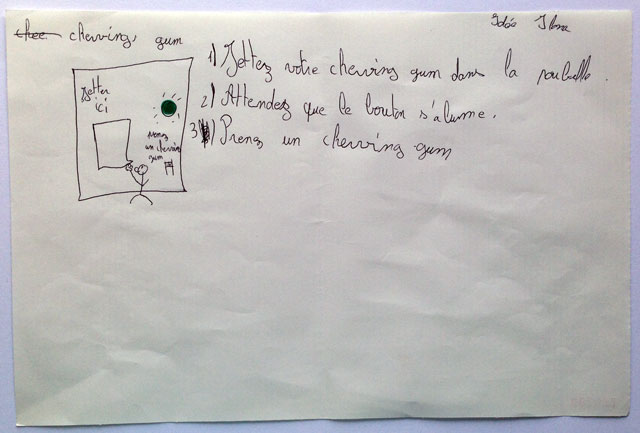 chewing gum
1) Jettez votre chewing gum dans la poubelle.
2) Attendez que le bouton s'alume.
3) Prenez un chewing gum
Jetter
ici
Prenez
un chewing
gum